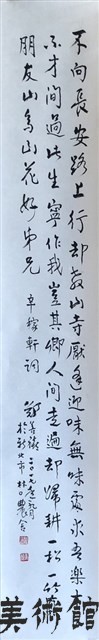 不向長安路上行却教山寺厭逢迎味無味處求吾樂材
不才間過此生寧作我豈其卿人間走遍却歸耕一松一竹真
朋友山鳥山花好弟兄
辛稼軒詞
鄭善禧
於新北市林口農舍
美術館